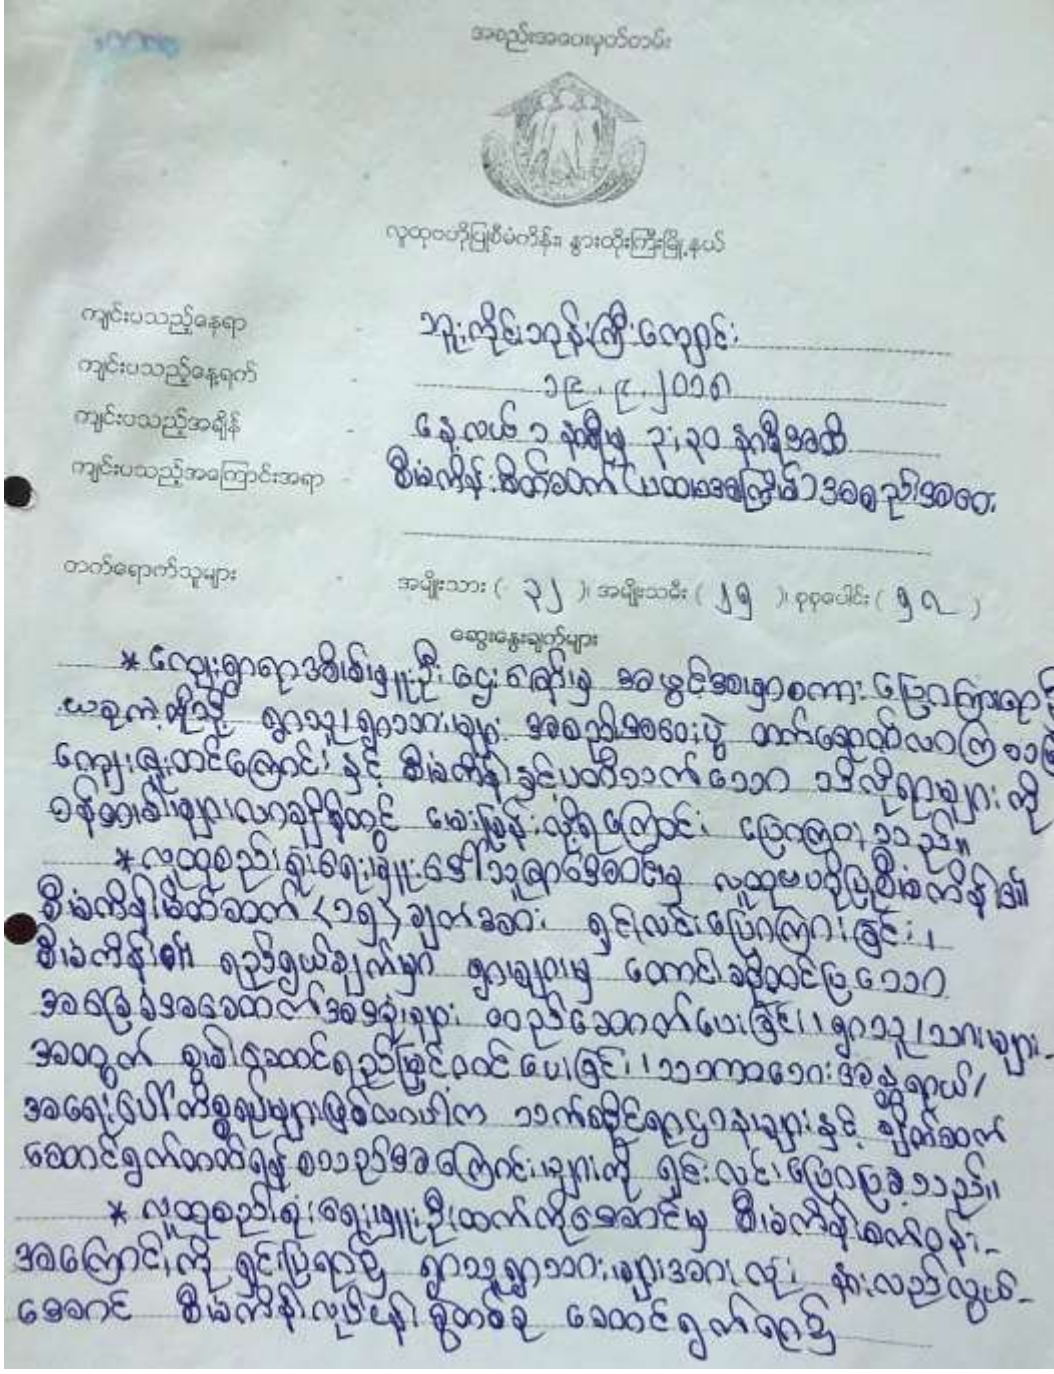 အစည်းအဝေးမှတ်တမ်း
လူထုဗဟိုပြုစီမံကိန်း၊ နွားထိုးကြီးမြို့နယ်
ကျင်းပသည့်နေရာ ဘူးကိုင်းဘုန်းကြီးကျောင်း
ကျင်းပသည့်နေ့ရက် ၁၉.၉.၂၀၁၈
ကျင်းပသည့်အချိန် နေ့လယ် ၁ နာရီမှ ၃:၃၀ နာရီအထိ
ကျင်းပသည့်အကြောင်းအရာ - စီမံကိန်းမိတ်ဆက် (ပထမအကြိမ်) အစည်းအဝေး
တက်ရောက်သူများ - အမျိုးသား ( ၃၂ )၊ အမျိုးသမီး ( ၂၅ )၊ စုစုပေါင်း ( ၅၇ )
ဆွေးနွေးချက်များ
* ကျေးရွာရာအိမ်မှူး ဦးဌေးကျော်မှ အဖွင့်အမှာစကား ပြောကြားရာ
ယခုကဲ့သို့ ရွာသူ၊ ရွာသားများ အစည်းအဝေးပွဲ တက်ရောက်လာကြ
ကျေးဇူးတင်ကြောင်း နှင့် စီမံကိန်းနှင့်ပတ်သက်သော သိလိုရာများ ကို
ဝန်ထမ်းများလာချိန်တွင် မေးမြန်းလို့ရကြောင်း ပြောကြားသည်။
* လူထုစည်းရုံးရေးမှူး ဒေါ်သူဇာ မှ လူထုဗဟိုပြုစီမံကိန်း၏
စီမံကိန်းမိတ်ဆက် (၁၅) ချက်အား ရှင်းလင်းပြောကြားခြင်း၊
စီမံကိန်း၏ ရည်ရွယ်ချက်မှာ ရွာများမှ တောင်းဆိုတင်ပြသော
အခြေခံအဆောက်အအုံများ တည်ဆောက်ပေးခြင်း၊ ရွာသူ/သားများ
အတွက် စွမ်းဆောင်ရည်မြှင့်တင်ပေးခြင်း၊ သဘာဝဘေးအန္တရာယ်/
အရေးပေါ်ကိစ္စရပ်များဖြစ်လာပါက သက်ဆိုင်ရာဌာနများနှင့် ချိတ်ဆက်
ဆောင်ရွက်တတ်ရန် စသည့်အကြောင်းများကို ရှင်းလင်းပြောပြခဲ့သည်။
* လူထုစည်းရုံးရေးမှူး ဦးထက်ကိုအောင်မှ စီမံကိန်းစက်ဝန်း
အကြောင်းကို ရှင်းပြရာ၌ ရွာသူရွာသားများအားလုံး နားလည်လွယ်
အောင် စီမံကိန်းလုပ်ငန်းခွဲတစ်ခု ဆောင်ရွက်ရာ၌